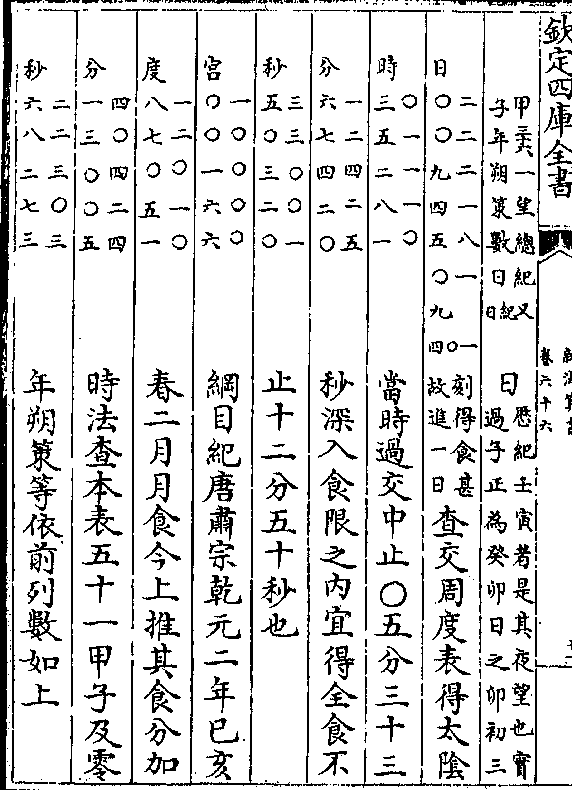 欽定四庫全書
卷六十六
甲三六一望總紀又
子年朔策數日紀日
日歷紀壬寅者是其夜望也實
過子正為癸卯日之卯初三
日二二二一八一
〇〇九四五〇九四
一刻得食甚
故進一日
查交周度表得太陰
時〇一一一〇
三五二八一
當時過交中止〇五分三十三
分一二四二五
六七四二〇
秒深入食限之内宜得全食不
秒三三〇〇一
五〇三二〇
止十二分五十秒也
宮一〇〇〇〇
〇〇一六六
綱目紀唐肅宗乾元二年已亥
度一二〇一〇
八七〇五一
春二月月食今上推其食分加
分四〇四二四
一三〇〇五
時法查本表五十一甲子及零
秒二二三〇三
六八二七三
年朔策等依前列數如上